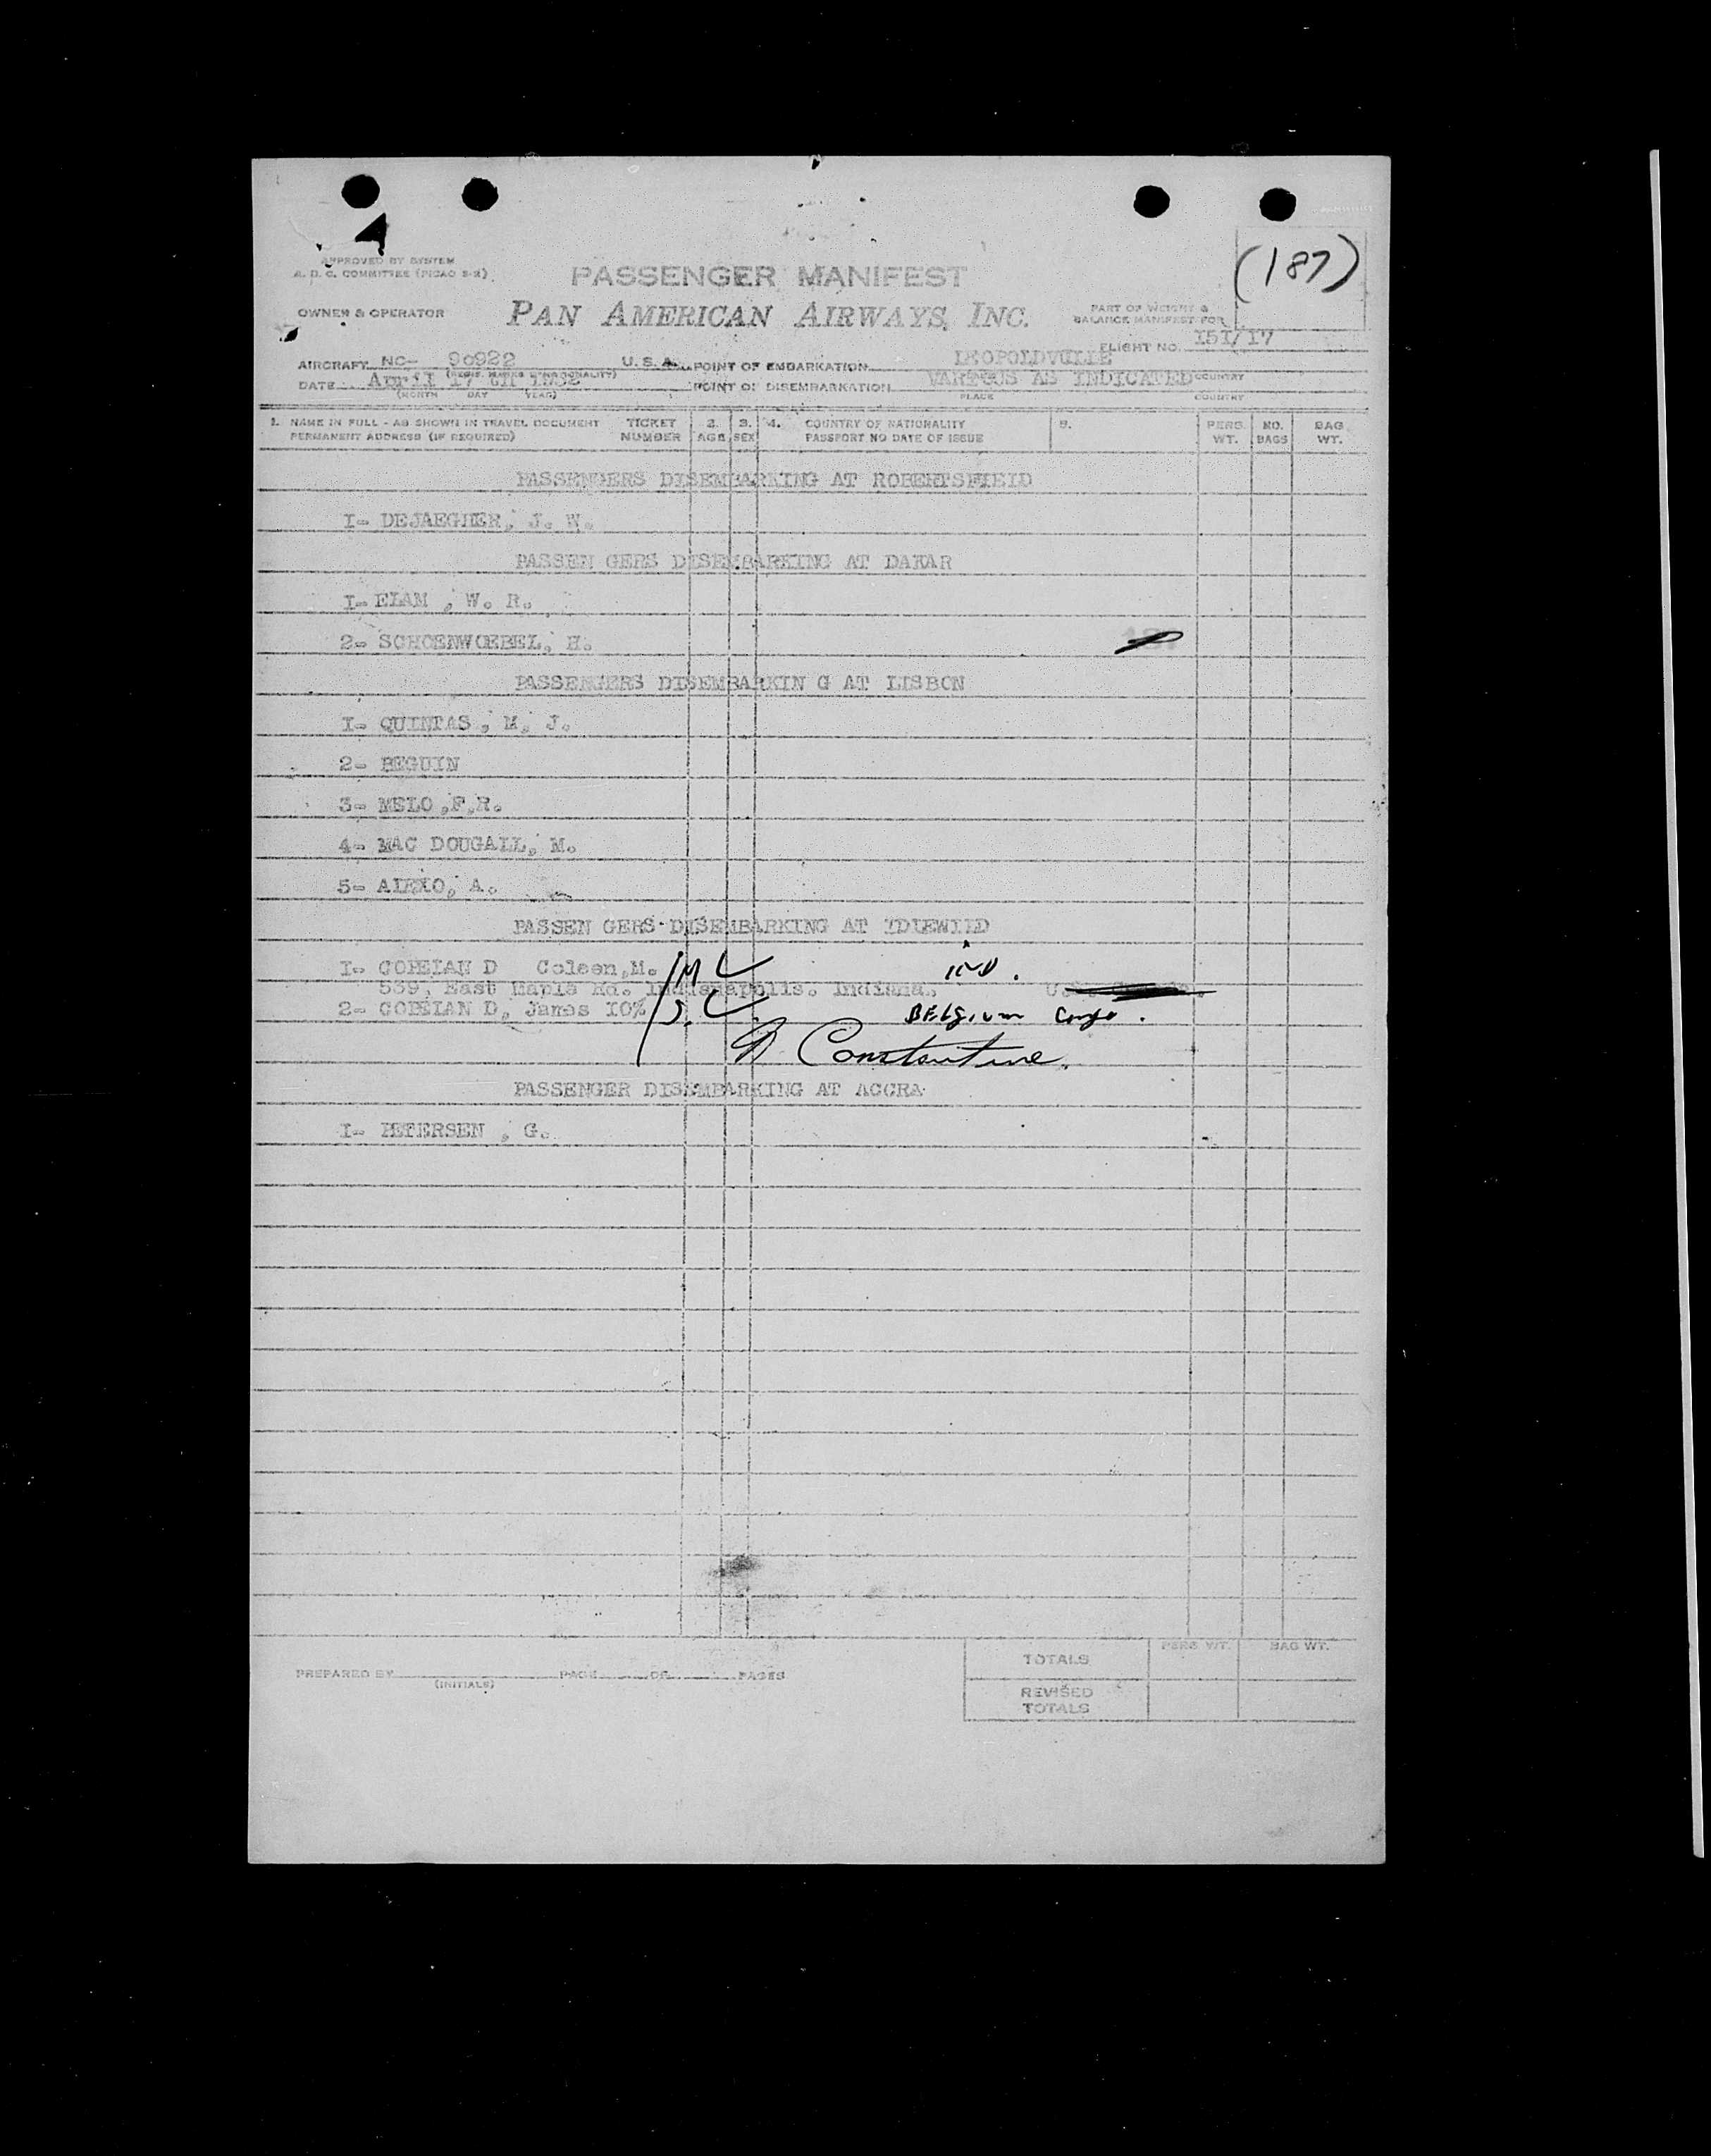 APPROVED BY SYSTEM
A. D. C. COMMITTEE (PICAO S-2)
(187)
PASSENGER MANIFEST
OWNER & OPERATOR
PAN AMERICAN AIRWAYS, INC.
PART OF WEIGHT &
BALANCE MANIFEST FOR
FLIGHT NO. 151/17
AIRCRAFT NC- 90922 U. S. A. POINT OF EMBARKATION LEOPOLDVILLE
(REGIS. MARKS & NATIONALITY)
DATE April 17 th 1952 POINT OF DISEMBARKATION VARIOUS AS INDICATED COUNTRY
(MONTH DAY YEAR) PLACE COUNTRY
1. NAME IN FULL - AS SHOWN IN TRAVEL DOCUMENT TICKET 2. 3. 4. COUNTRY OF NATIONALITY 5. PERS. NO. BAG
PERMANENT ADDRESS (IF REQUIRED) NUMBER AGE SEX PASSPORT NO DATE OF ISSUE WT. BAGS WT.
PASSENGERS DISEMBARKING AT ROBERTSFIELD
I- DEJAEGHER, J. W.
PASSEN GERS DISEMBARKING AT DAKAR
I- ELAM , W. R.
2- SCHOENWOEBEL, H.
PASSENGERS DISEMBARKIN G AT LISBON
I- QUINTAS , M, J.
2- BEGUIN
3- MELO ,F,R.
4- MAC DOUGALL, M.
5- ALEXO, A.
PASSEN GERS DISEMBARKING AT IDLEWILD
I- COPELAN D Coleen,M.
539, East Maple Rd. Indianapolis. Indiana.
2- COPELAN D, James 10%
Belgium Congo.
Constantine.
PASSENGER DISEMBARKING AT ACCRA
I- PETERSEN , G.
PREPARED BY PAGE OF PAGES
(INITIALS)
PERS WT. BAG WT.
TOTALS
REVISED
TOTALS